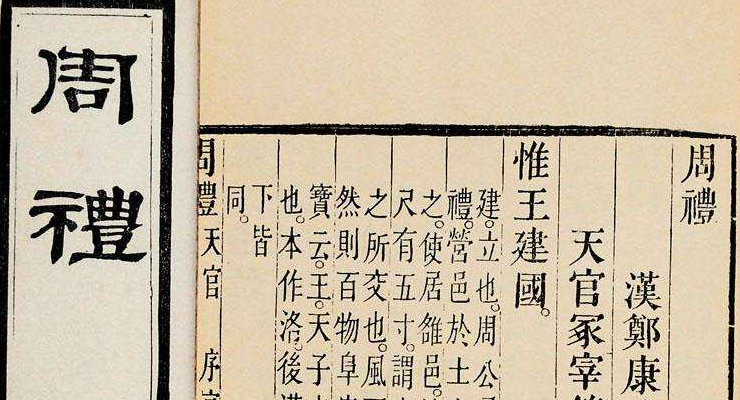 周禮
周禮
漢鄭康
天官冢宰
惟王建國。
建。立也。周公
禮。營邑於土
之。使居雒邑。
尺有五寸。謂
之所交也。風
然則百物阜
寶云。王。天子
也。本作洛。後漢
下皆
同。
周禮 天官 序